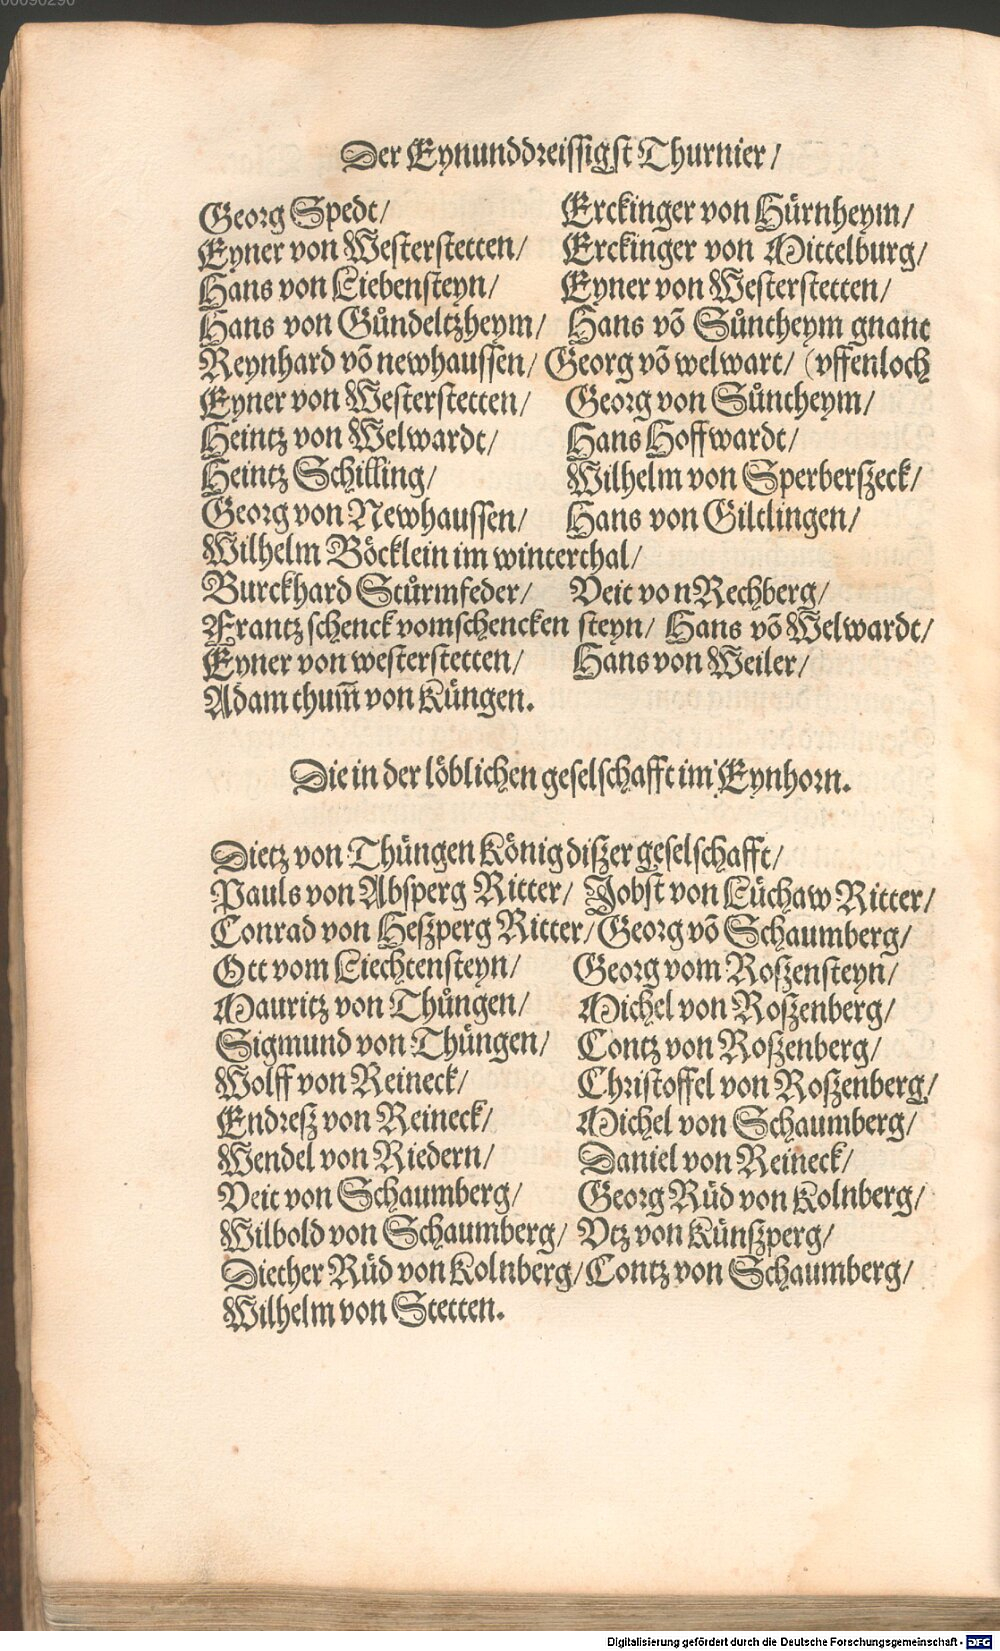 00090290
Der Eynunddreissigst Thurnier/
Georg Spedt/ Erckinger von Hürnheym/
Eyner von Westerstetten/ Erckinger von Mittelburg/
Hans von Liebensteyn/ Eyner von Westerstetten/
Hans von Gůndeltzheym/ Hans võ Sůntheym gnant
Reynhard võ newhaussen/ Georg võ welwart/ (vffenloch
Eyner von Westerstetten/ Georg von Sůntheym/
Heintz von Welwardt/ Hans Hoffwardt/
Heintz Schilling/ Wilhelm von Sperberszeck/
Georg von Newhaussen/ Hans von Giltlingen/
Wilhelm Böcklein im winterthal/
Burckhard Stůrmfeder/ Veit von Rechberg/
Frantz schenck vom schencken steyn/ Hans võ Welwardt/
Eyner von westerstetten/ Hans von Weiler/
Adam thum̃ von Küngen.
Die in der löblichen geselschafft im Eynhorn.
Dietz von Thüngen König diszer geselschafft/
Pauls von Absperg Ritter/ Jobst von Lüchaw Ritter/
Conrad von Heszperg Ritter/ Georg võ Schaumberg/
Ott vom Liechtensteyn/ Georg vom Roszensteyn/
Mauritz von Thůngen/ Michel von Roszenberg/
Sigmund von Thůngen/ Contz von Roszenberg/
Wolff von Reineck/ Christoffel von Roszenberg/
Endresz von Reineck/ Michel von Schaumberg/
Wendel von Riedern/ Daniel von Reineck/
Veit von Schaumberg/ Georg Rüd von Kolnberg/
Wilbold von Schaumberg/ Vtz von Künszperg/
Diether Rüd von Kolnberg/ Contz von Schaumberg/
Wilhelm von Stetten.
Digitalisierung gefördert durch die Deutsche Forschungsgemeinschaft - DFG